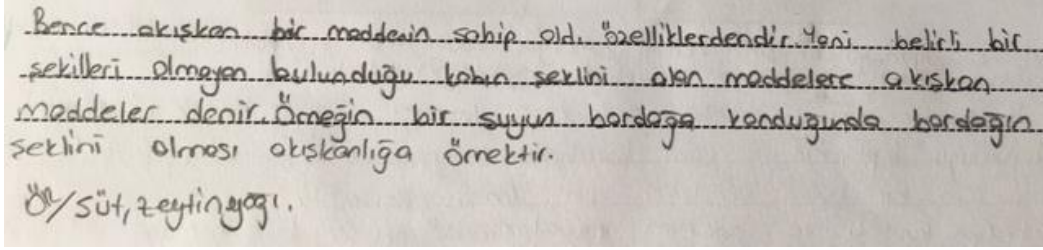 Bence akışkan bir maddenin sahip old. özelliklerdendir. Yani belirli bir
şekilleri olmayan bulunduğu kabın şeklini alan maddelere akışkan
maddeler denir. Örneğin bir suyun bardağa konduğunda bardağın
şeklini alması akışkanlığa örnektir.
Ör/süt, zeytinyağı.